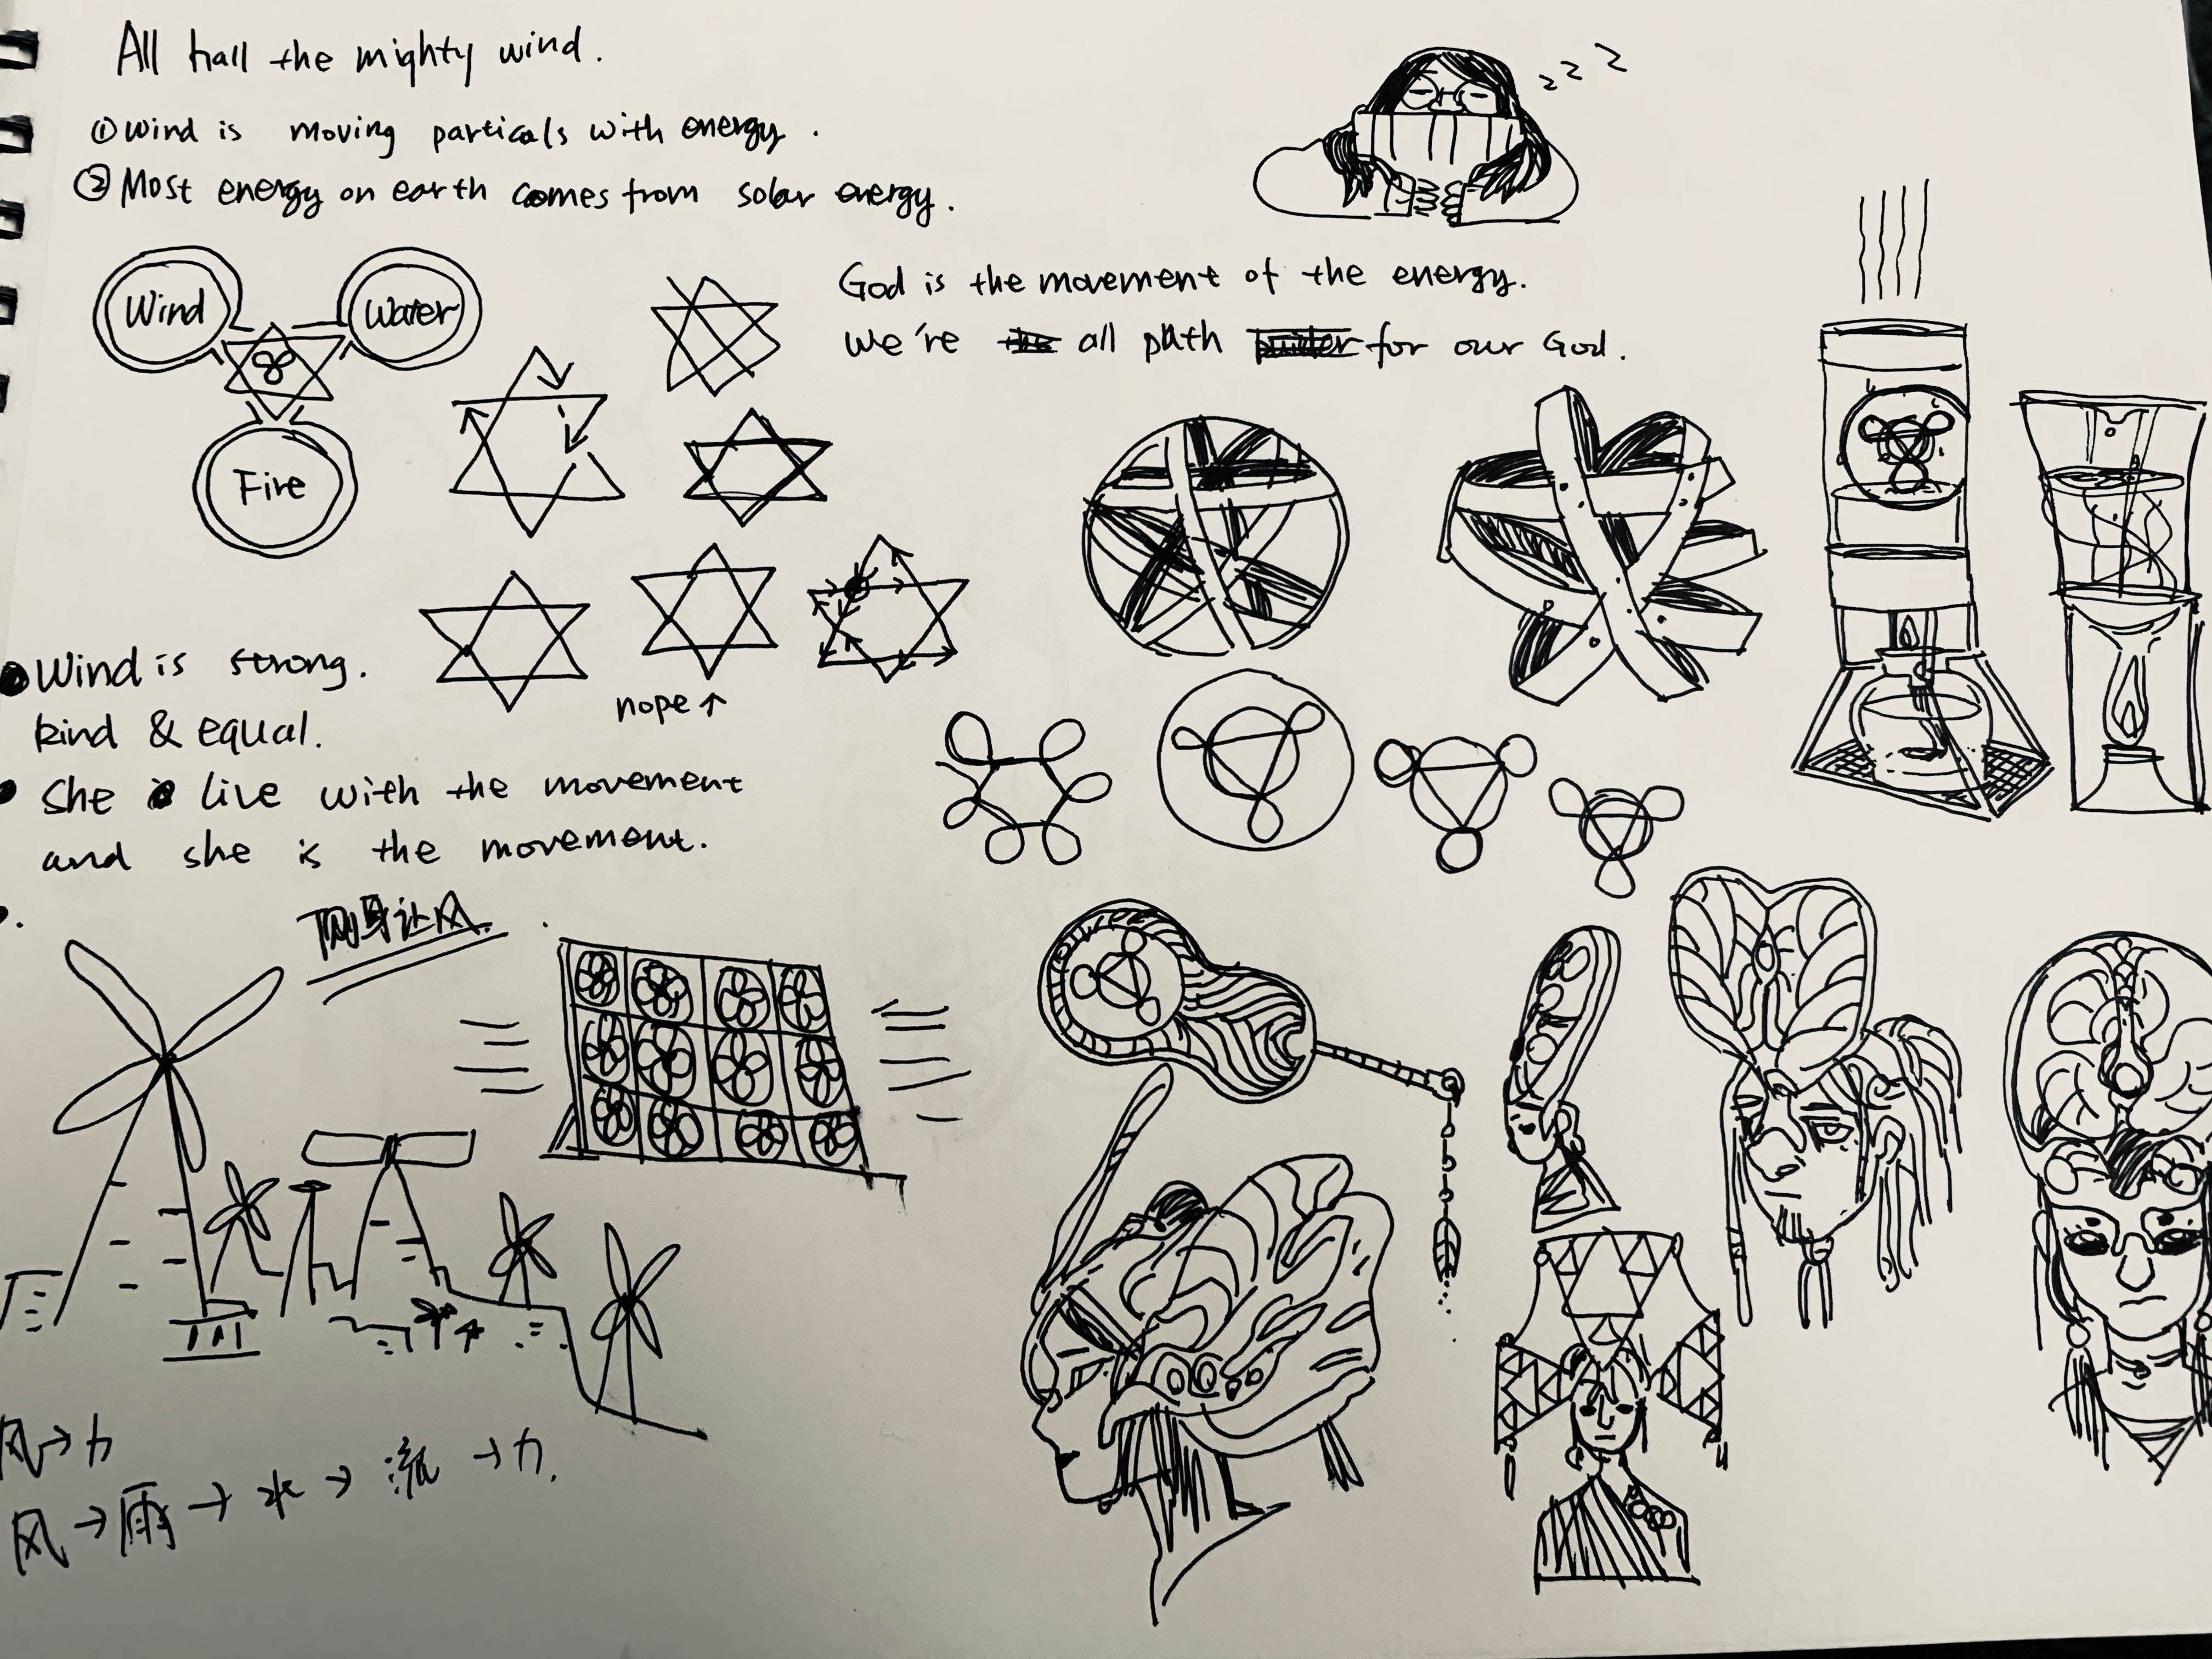 All hall the mighty wind.
① Wind is moving particals with energy.
② Most energy on earth comes from solar energy.
z z z
Wind
Water
Fire
God is the movement of the energy.
we're all path for our God.
nope ↑
Wind is strong.
kind & equal.
She live with the movement
and she is the movement.
侧身让风.
风→力
风→雨→水→流→力.